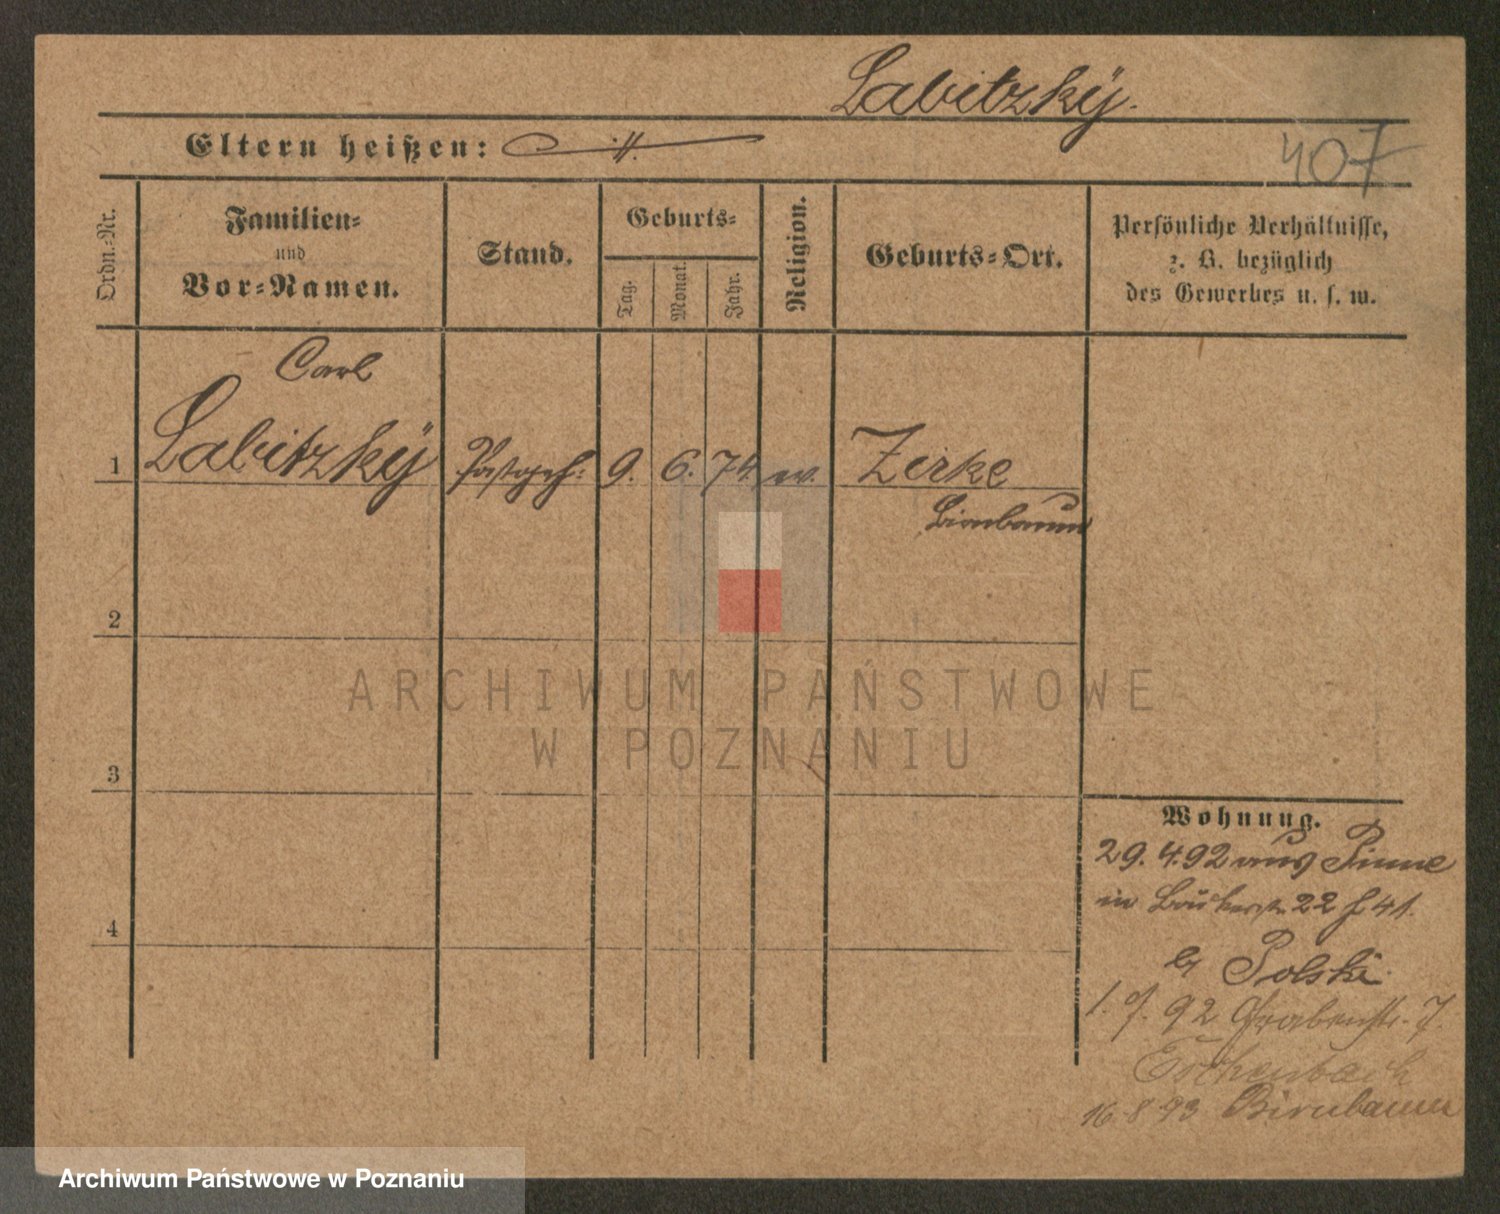 Labitzky.
Eltern heißen:
407
Ordn.-Nr.
Familien-
und
Vor-Namen.
Stand.
Geburts-
Tag.
Monat.
Jahr.
Religion.
Geburts-Ort.
Persönliche Verhältnisse,
z. B. bezüglich
des Gewerbes u. s. w.
Carl
1 Labitzky Postgeh: 9. 6. 74. ev. Zirke
Birnbaum
2
3
4
Wohnung.
29. 4. 92 aus Pinne
in 22 41.
b/ Polski.
1. 92 Grabenstr. 7.
Eschenbach
16 8 93 Birnbaum
ARCHIWUM PAŃSTWOWE
W POZNANIU
Archiwum Państwowe w Poznaniu